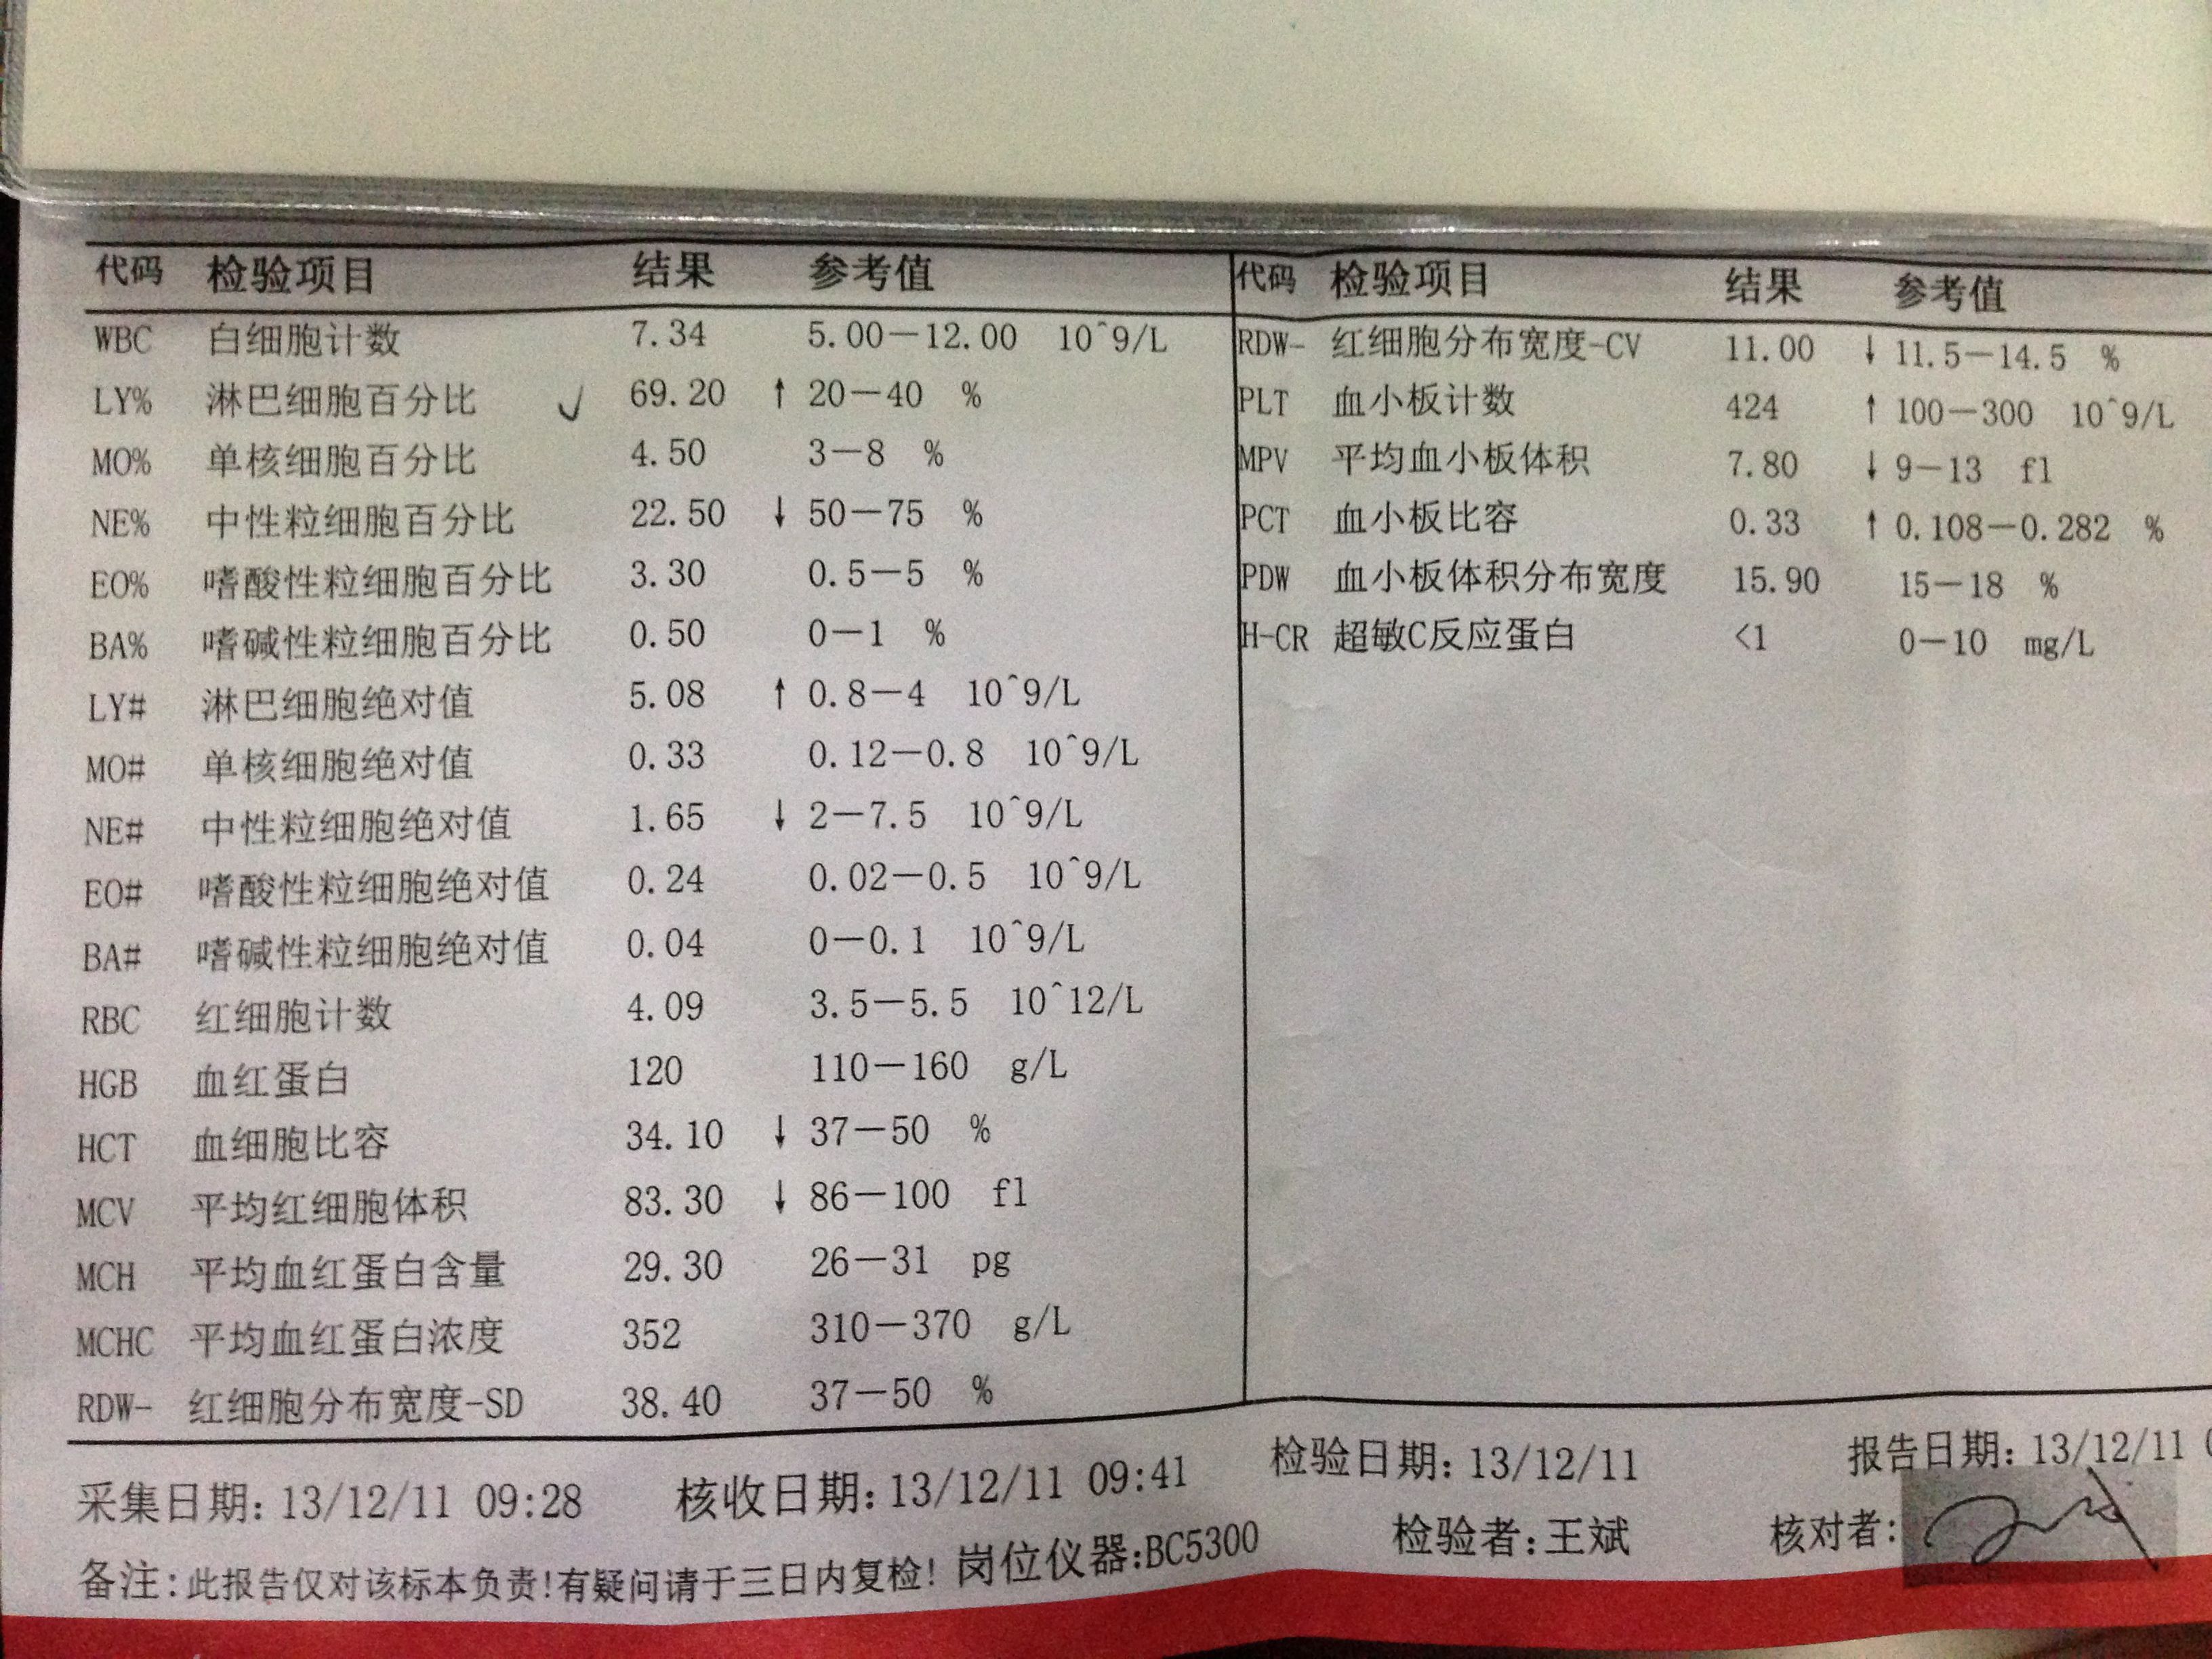 代码 检验项目 结果 参考值
WBC 白细胞计数 7.34 5.00—12.00 10^9/L
LY% 淋巴细胞百分比 √ 69.20 ↑ 20—40 %
MO% 单核细胞百分比 4.50 3—8 %
NE% 中性粒细胞百分比 22.50 ↓ 50—75 %
EO% 嗜酸性粒细胞百分比 3.30 0.5—5 %
BA% 嗜碱性粒细胞百分比 0.50 0—1 %
LY# 淋巴细胞绝对值 5.08 ↑ 0.8—4 10^9/L
MO# 单核细胞绝对值 0.33 0.12—0.8 10^9/L
NE# 中性粒细胞绝对值 1.65 ↓ 2—7.5 10^9/L
EO# 嗜酸性粒细胞绝对值 0.24 0.02—0.5 10^9/L
BA# 嗜碱性粒细胞绝对值 0.04 0—0.1 10^9/L
RBC 红细胞计数 4.09 3.5—5.5 10^12/L
HGB 血红蛋白 120 110—160 g/L
HCT 血细胞比容 34.10 ↓ 37—50 %
MCV 平均红细胞体积 83.30 ↓ 86—100 fl
MCH 平均血红蛋白含量 29.30 26—31 pg
MCHC 平均血红蛋白浓度 352 310—370 g/L
RDW- 红细胞分布宽度-SD 38.40 37—50 %
代码 检验项目 结果 参考值
RDW- 红细胞分布宽度-CV 11.00 ↓ 11.5—14.5 %
PLT 血小板计数 424 ↑ 100—300 10^9/L
MPV 平均血小板体积 7.80 ↓ 9—13 fl
PCT 血小板比容 0.33 ↑ 0.108—0.282 %
PDW 血小板体积分布宽度 15.90 15—18 %
H-CR 超敏C反应蛋白 <1 0—10 mg/L
采集日期: 13/12/11 09:28 核收日期: 13/12/11 09:41 检验日期: 13/12/11 报告日期: 13/12/11
备注: 此报告仅对该标本负责!有疑问请于三日内复检! 岗位仪器:BC5300 检验者: 王斌 核对者: